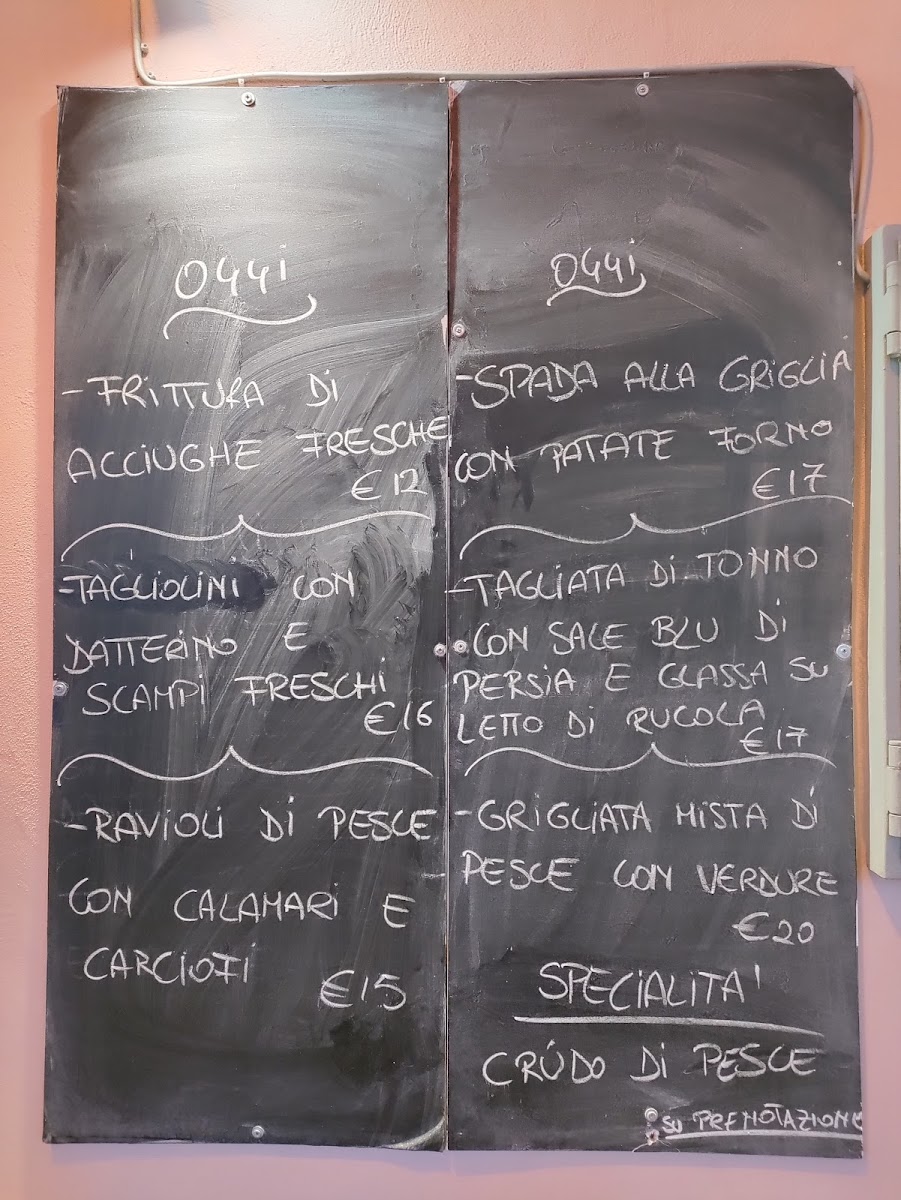 OGGI
-FRITTURA DI
ACCIUGHE FRESCHE
€12
-TAGLIOLINI CON
DATTERINO E
SCAMPI FRESCHI
€16
-RAVIOLI DI PESCE
CON CALAMARI E
CARCIOFI
€15
OGGI
-SPADA ALLA GRIGLIA
CON PATATE FORNO
€17
-TAGLIATA DI TONNO
CON SALE BLU DI
PERSIA E GLASSA SU
LETTO DI RUCOLA
€17
-GRIGLIATA MISTA DI
PESCE CON VERDURE
€20
SPECIALITA'
CRÚDO DI PESCE
SU PRENOTAZIONE